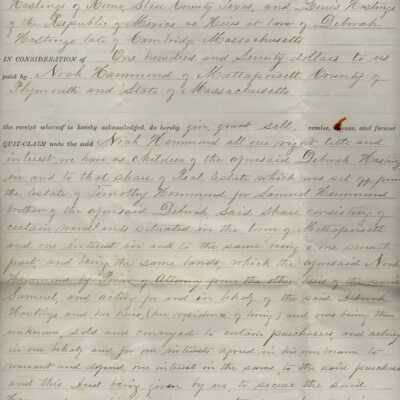 Hastings of Sten County Texas, and Lewis Hastings
of the Republic of Mexico as Heirs at law of Deborah
Hastings late of Cambridge Massachusetts
IN CONSIDERATION of One hundred and Seventy dollars to us
paid by Noah Hammond of Mattapoisett County of
Plymouth and State of Massachusetts
the receipt whereof is hereby acknowledged, do hereby give, grant sell, remise, release, and forever
QUIT-CLAIM unto the said Noah Hammond all our right title and
interest we have as children of the aforesaid Deborah Hastings
in and to that share of Real Estate which was set off from
the estate of Timothy Hammond for Samuel Hammond
brother of the aforesaid Deborah said share consisting of
certain woodlands situated in the town of Mattapoisett
and our interest in and to the same being one seventh
part and being the same lands, which the aforesaid Noah
Hammond by Power of Attorney from the other heirs of the said
Samuel, and acting for and in behalf of the said Deborah
Hastings and her heirs, (her residence if living) and ours being then
unknown, sold and conveyed to certain purchasers, and acting
in our behalf and for our interests agreed in his own name to
warrant and defend our interest in the same, to the said purchasers
and this deed being given by us, to secure the said